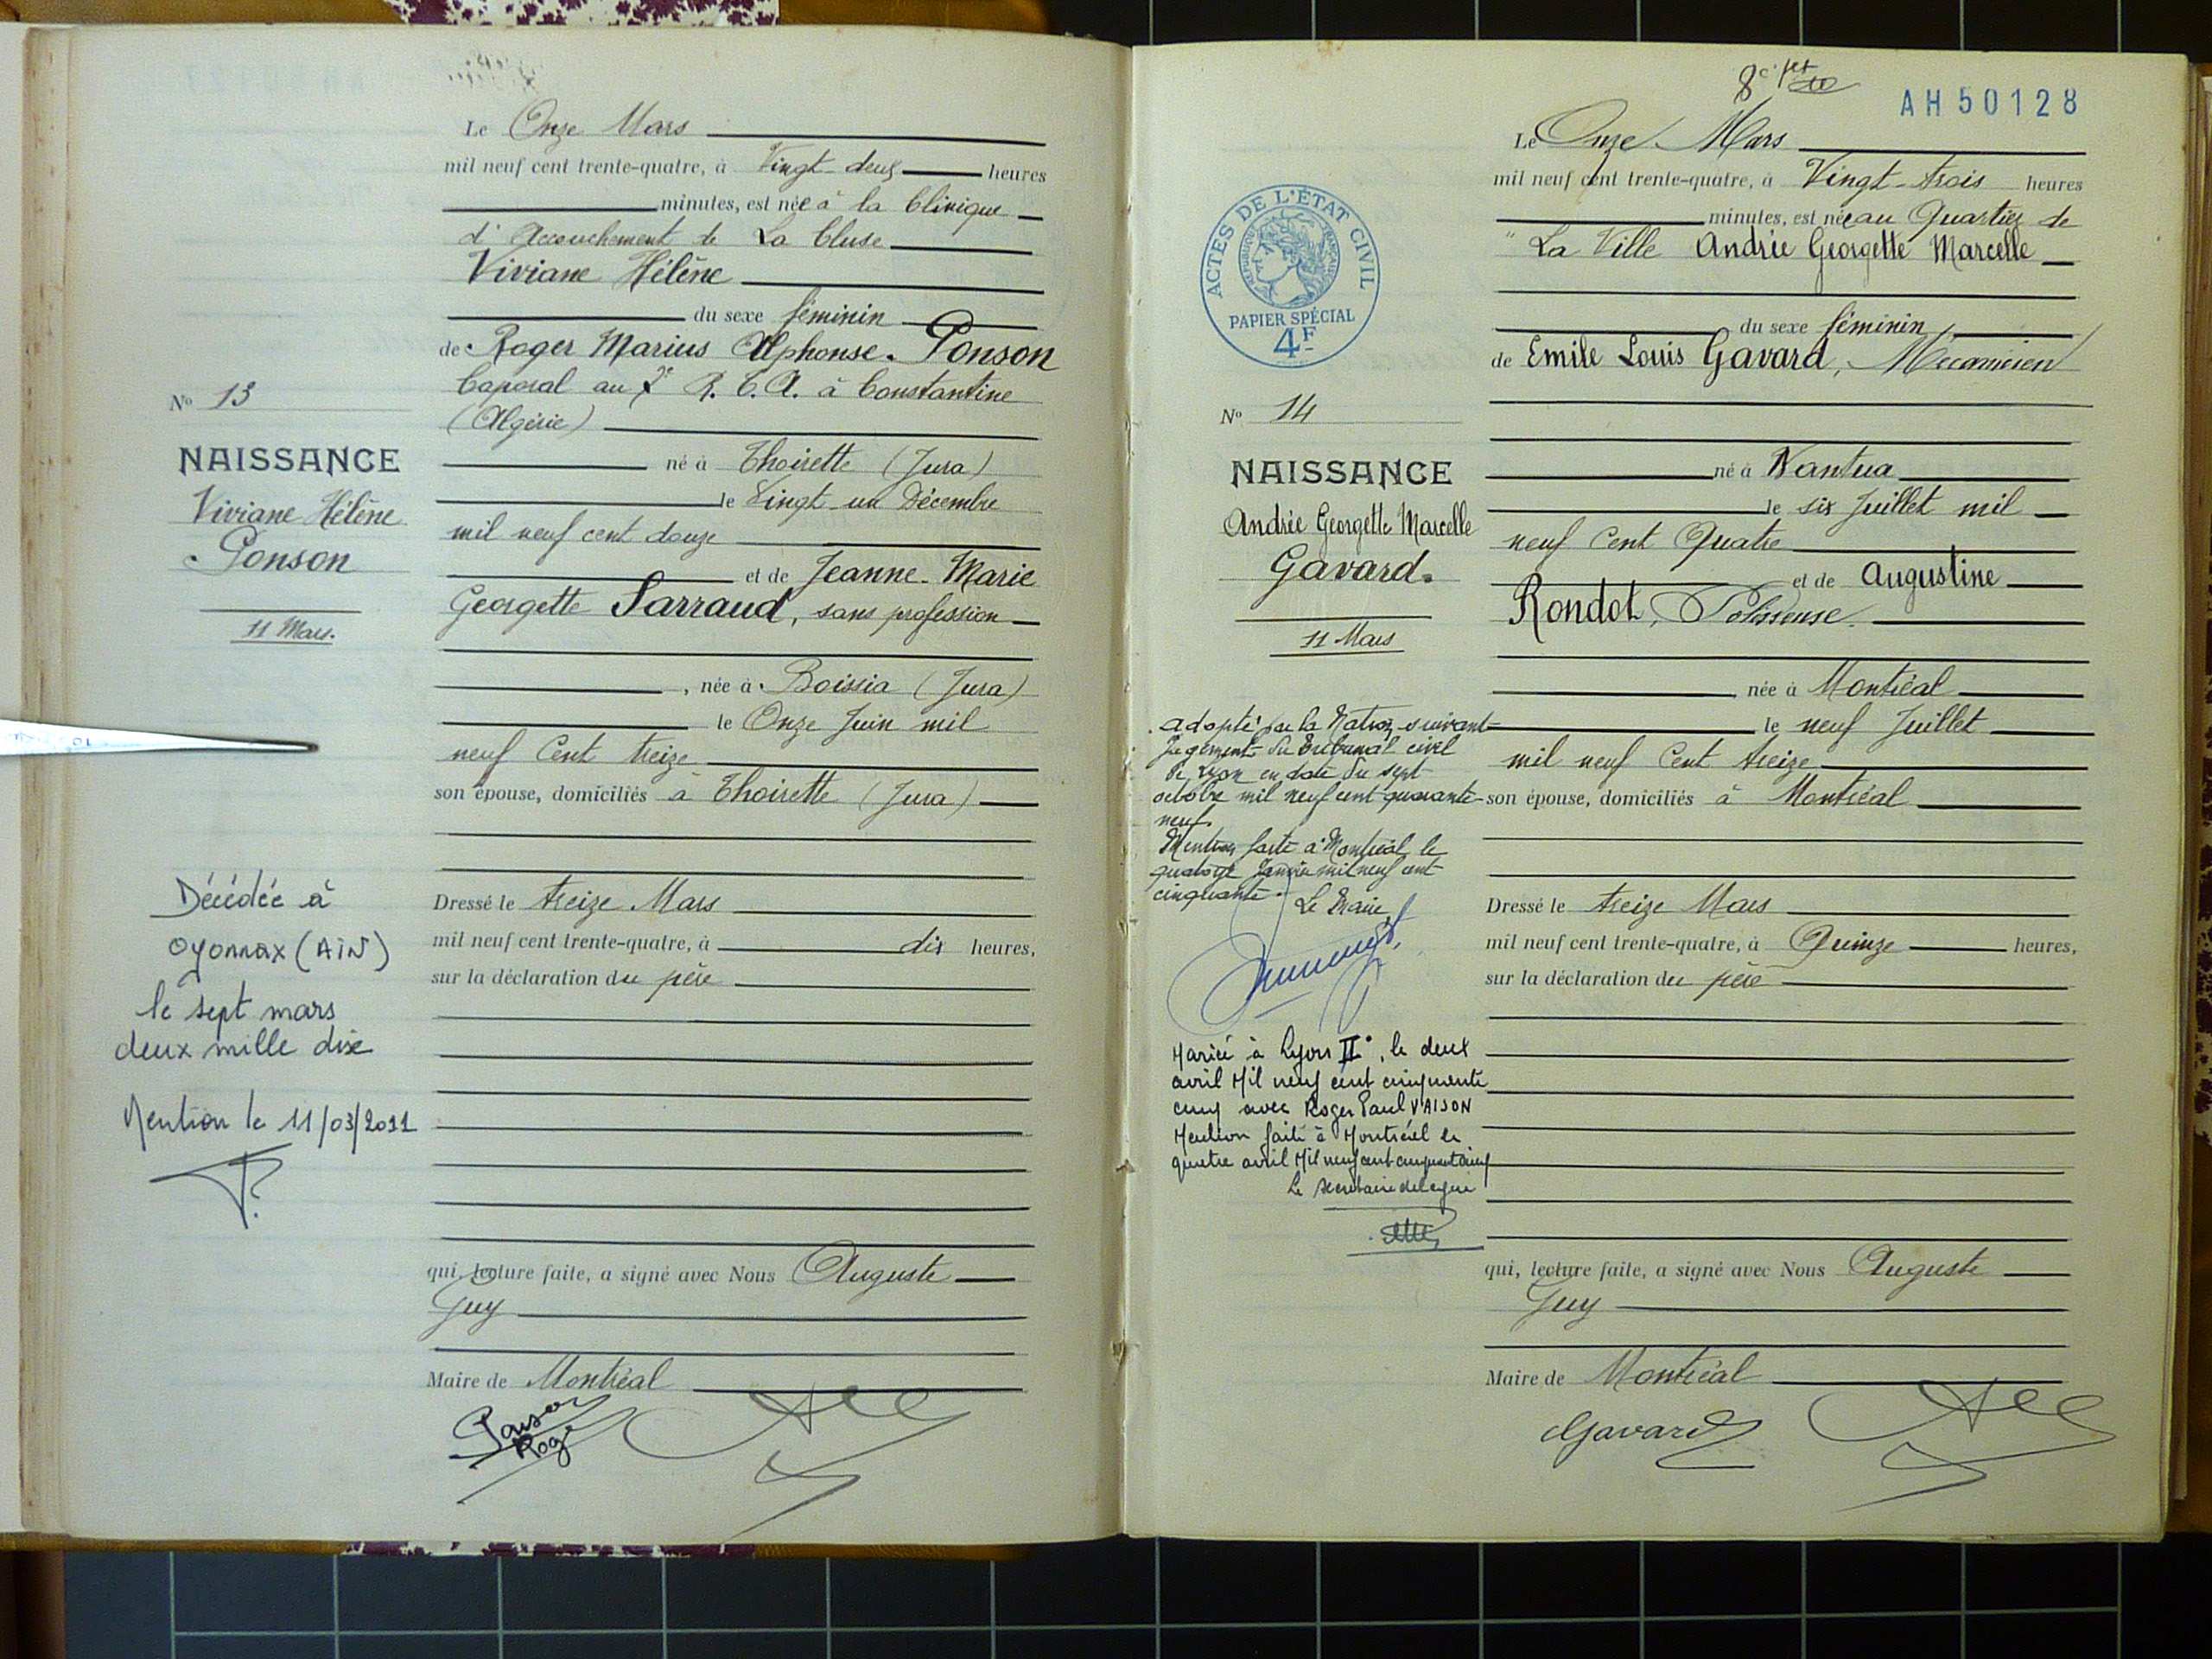 Le Onze Mars
mil neuf cent trente-quatre, à Vingt deux heures
minutes, est née à la Clinique
d'Accouchement de La Cluse
Viviane Hélène
du sexe féminin
de Roger Marius Alphonse Ponson
Caporal au R. T. A. à Constantine
(Algérie)
né à Thoirette (Jura)
le Vingt un Décembre
mil neuf cent douze
et de Jeanne-Marie
Georgette Sarraud, sans profession
, née à Boissia (Jura)
le Onze Juin mil
neuf Cent treize
son épouse, domiciliés à Thoirette (Jura)
Dressé le treize Mars
mil neuf cent trente-quatre, à dix heures,
sur la déclaration du père
qui, lecture faite, a signé avec Nous Auguste
Guy
Maire de Montréal
Roger
No 13
NAISSANCE
Viviane Hélène
Ponson
11 Mars.
Décédée à
Oyonnax (AIN)
le sept mars
deux mille dix
Mention le 11/03/2011
AH 50128
Le Onze Mars
mil neuf cent trente-quatre, à Vingt-trois heures
minutes, est née au Quartier de
" La Ville Andrée Georgette Marcelle
du sexe féminin
de Emile Louis Gavard, Mécanicien
né à Nantua
le six Juillet mil
neuf Cent Quatre
et de Augustine
Rondot, Polisseuse.
née à Montréal
le neuf Juillet
mil neuf Cent treize
son épouse, domiciliés à Montréal
Dressé le treize Mars
mil neuf cent trente-quatre, à Quinze heures,
sur la déclaration du père
qui, lecture faite, a signé avec Nous Auguste
Guy
Maire de Montréal
Gavard
ACTES DE L'ÉTAT CIVIL
RÉPUBLIQUE FRANÇAISE
PAPIER SPÉCIAL
4F
No 14
NAISSANCE
Andrée Georgette Marcelle
Gavard.
11 Mars
adopté par la Nation suivant
jugement du Tribunal civil
de Lyon en date du sept
octobre mil neuf cent quarante
neuf.
Mention faite à Montréal le
quatorze Janvier mil neuf cent
cinquante.
Le Maire
Mariée à Lyon II°, le deux
avril Mil neuf cent cinquante
cinq avec Roger Paul VAISON
Mention faite à Montréal le
quatre avril Mil neuf cent cinquante cinq
Le secrétaire délégué